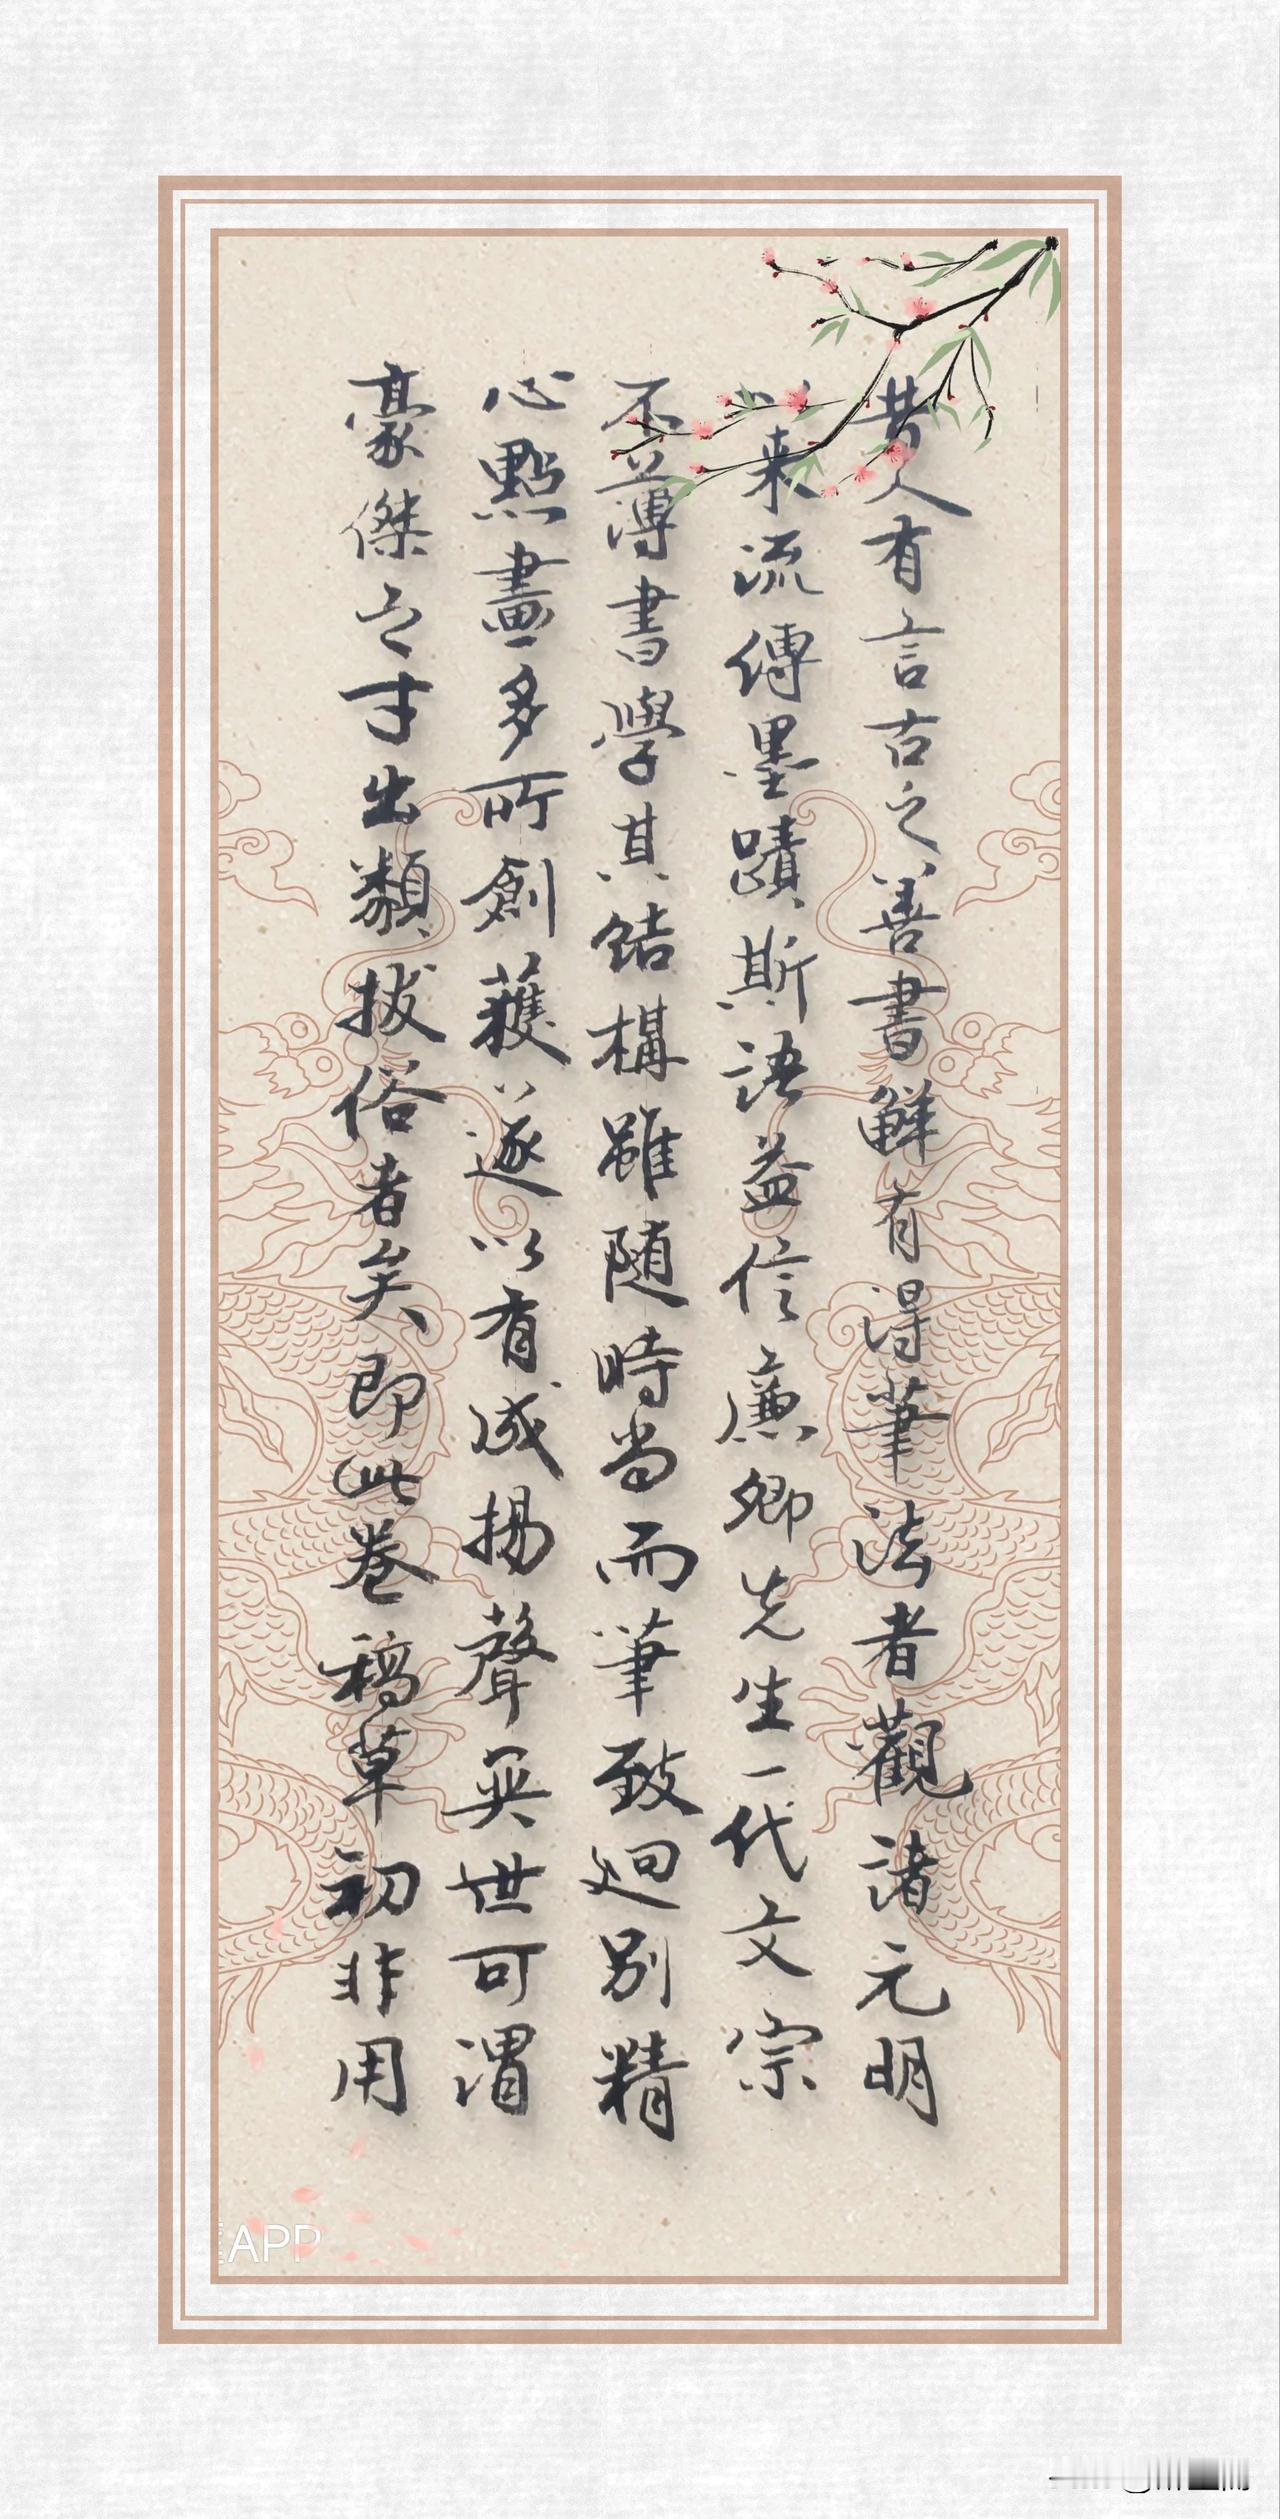 昔人有言古之善書鮮有得筆法者觀諸元明
以来流傳墨蹟斯語益信廉卿先生一代文宗
不薄書學其結構雖随時尚而筆致迥别精
心點畫多所創獲遂以有成揚聲奕世可謂
豪傑之才出類拔俗者矣即此卷稿草初非用
APP